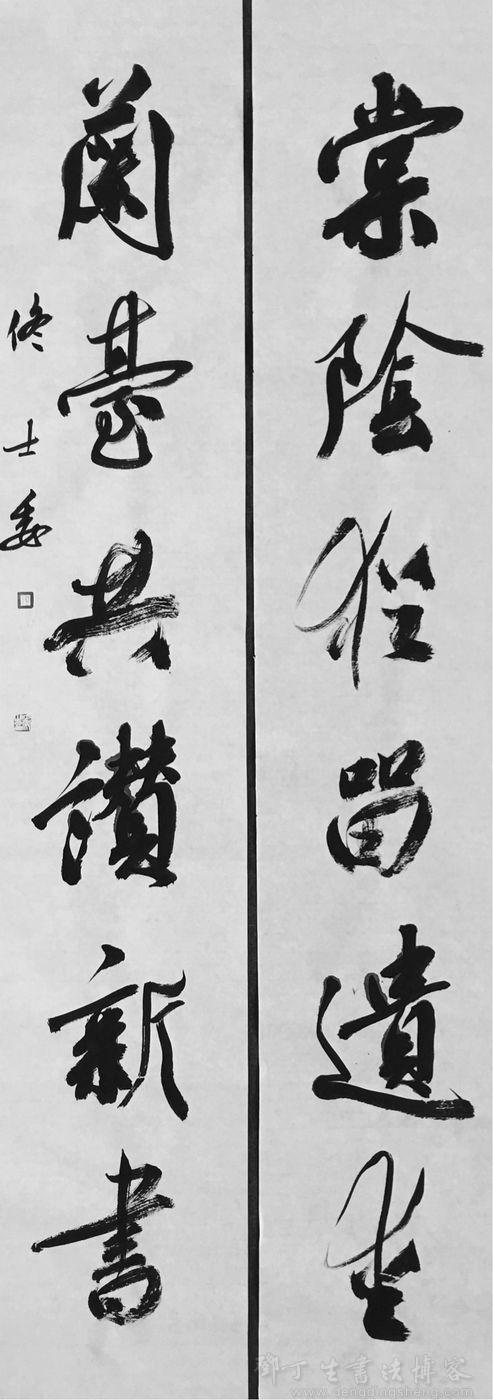 棠陰猶留遺愛
蘭臺共讚新書
鄧丁生書法博客
www.dengdingsheng.com